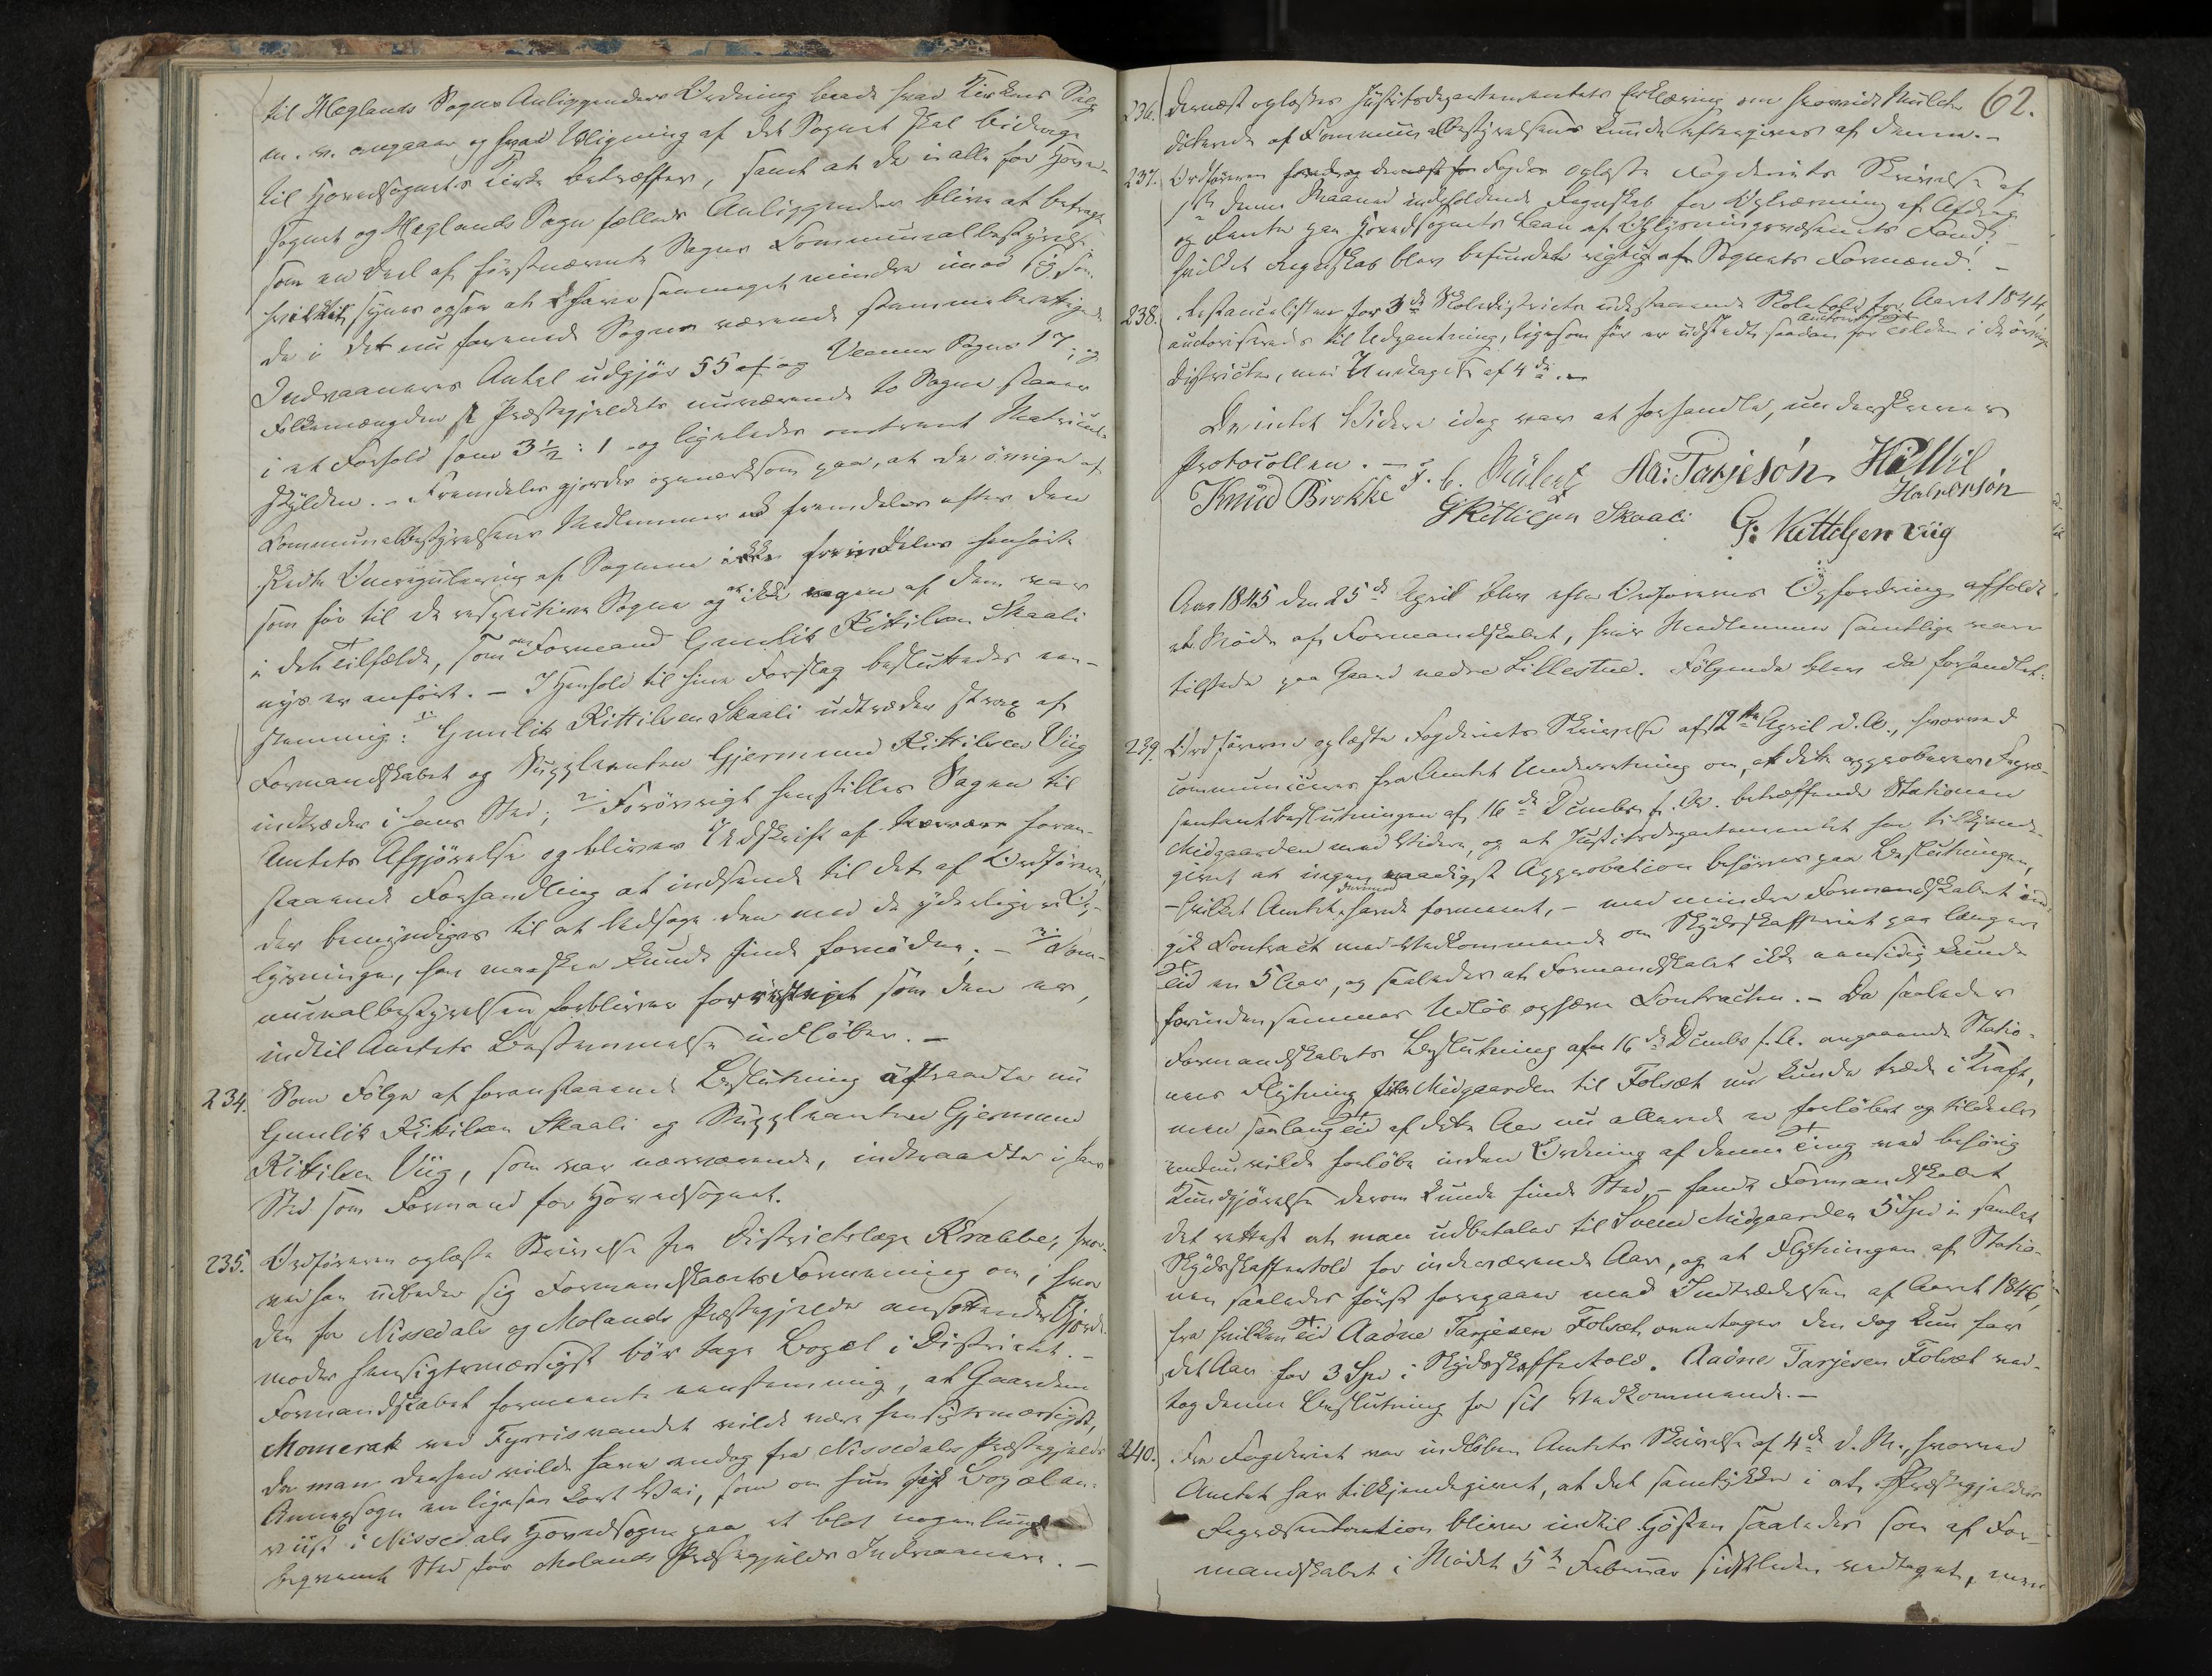 til Heglands Sogns Anliggenders Ordning baade hvad Kirkens Salg
m. v. angaaer og hvad Udligning af det Sognet skal bidrage
til Hovedsognets Kirke betræffer, samt at de i alle for Hoved-
sognet og Heglands Sogn fælleds Anliggender bliver at betragte
som en Deel af førstnævnte Sogns Communalbestyrelse
hvilket synes ogsaa at have saameget mindre imod sig som
da i det nu havende Sogn værende stemmeberettigede
Indvaaneres Antal udgjør 55 og Veums Sogns 17, og
Folkemængden i Præstegjeldets nuværende to Sogne staaer
i et Forhold som 3 1/2 : 1 og ligeledes omtrent Matricul-
skylden. – Fremdeles gjordes opmærksom paa, at de øvrige af
Communalbestyrelsens Medlemmer fremdeles efter den
skedte Omregulering af Sognene ikke fremdeles henhørte
som før til de respective Sogne og at ikke nogen af dem var
i det Tilfælde, som om Formand Gunlik Kittilsen Skaali
nys er anført. – I Henhold til hine Forslag besluttedes een-
stemmig: 1. Gunlik Kittilsen Skaali udtræder strax af
Formandskabet og Suppleanten Gjermund Kittilsen Viig
indtræder i hans Sted; 2. Forøvrigt henstilles Sagen til
Amtets Afgjørelse og bliver Udskrift af nærværende foran-
staaende Forhandling at indsende til det af Ordføreren,
der bemyndiges til at ledsage den med de yderligere Op-
lysninger, han maaskee kunde finde fornødne; – 3. Com-
munalbestyrelsen forbliver forøvrigt som den er,
indtil Amtets Bestemmelse indløber. –
234. Som Følge af foranstaaende Beslutning udtraadte nu
Gunlik Kittilsen Skaali og Suppleanten Gjermund
Kittilsen Viig, som var nærværende, indtraadte i hans
Sted som Formand for Hovedsognet.
235. Ordføreren oplæste Skrivelse fra Districtslæge Krabbe, hvor-
ved han udbeder sig Formandskabets Formening om, hvor
den for Nissedals og Molands Præstegjelde ansættende Gjorde-
moder hensigtsmæssigst bør tage Bopæl i Districtet. –
Formandskabet formeente eenstemmig, at Gaarden
Momrak ved Fyrrisvandet vilde være hensigtsmæssigst,
da man derhen vilde have endog fra Nissedals Præstegjelds
Annexsogn en ligesaa kort Vei, som om hun fik Bopæl an-
viist i Nissedals Hovedsogn paa et blot nogenlunde
beqvemt Sted for Molands Præstegjelds Indvaanere. –
62.
236. Dernæst oplæstes Justitsdepartementets Erklæring om hvorvidt Mulcter
dicterede af Communalbestyrelsens kunde eftergives af denne. –
237. Ordføreren oplæste Fogderiets Skrivelse af
1ste denne Maaned indeholdende Regnskab for Opkrævning af Afdrag
og Rente paa Hovedsognets Laan af Oplysningsvæsenets Fond,
hvilket Regnskab blev befundet rigtig af Sognets Formænd. –
238. Restancelisten for 3de Skoledistricts udestaaende Skoletold for Aaret 1844,
auctoriseredes til Udpantning, ligesom før er udstedte saadan for Tolden i de øvrige
Districter, med Undtagelse af 4de. –
Da intet Videre idag var at forhandle, underskreves
Protocollen. –
Aa: Tarjesøn Kittil
Halvorsøn
Knud Brokke GKittilsen Skaali
G: Kittelsen Viig
Aar 1845 den 25de April blev efter Ordførerens Opfordring afholdt
et Møde af Formandskabet, hvis Medlemmer samtlige vare
tilstede paa Gaard nedre Lillestue. Følgende blev da forhandlet.
239. Ordføreren oplæste Fogderiets Skrivelse af 12te April d. A., hvorved
communiceres fra Amtet Underretning om, at dette approberer Repræ-
sentantbeslutningen af 16de December f. A. betræffende Stationen
Midgaarden med Videre, og at Justitsdepartementet har tilkjende-
givet at ingen naadigst Approbation behøves paa Beslutningen,
– hvilket Amtet havde formeent, – med mindre Formandskabet ind-
gik Contract med Vedkommende om Skydsskafferiet paa længere
Tid en 5 Aar, og saaledes at Formandskabet ikke eensidig kunde
forinden sammes Udløb ophæve Contracten. – Da saaledes
Formandskabets Beslutning af 16de Decembr f. A. angaaende Statio-
nens Flytning fra Midgaarden til Folsæt nu kunde træde i Kraft,
men saalang Tid af dette Aar nu allerede er forløbet og tildeels
endnu vilde forløbe inden Ordning af denne Ting ved behørig
Kundgjørelse derom kunde finde Sted, – fandt Formandskabet
det rettest at man udbetaler til Svend Midgaarden 5 Spd i samlet
Skydsskaffertold for indeværende Aar, og at Flytningen af Statio-
nen saaledes først foregaaer med Indtrædelsen af Aaret 1846,
fra hvilken Tid Aadne Tarjesen Folsæt overtager den dog kun for
det Aar for 3 Spd i Skydsskaffertold. Aadne Tarjesen Folsæt ved-
tog denne Beslutning for sit Vedkommende. –
240. Fra Fogderiet var indløben Amtets Skrivelse af 4de d. M., hvorved
Amtet har tilkjendegivet, at det samtykker i at Præstegjeldets
Repræsentation bliver indtil Høsten saaledes som af For-
mandskabet i Mødet 5te Februar sidstleden vedtaget, men